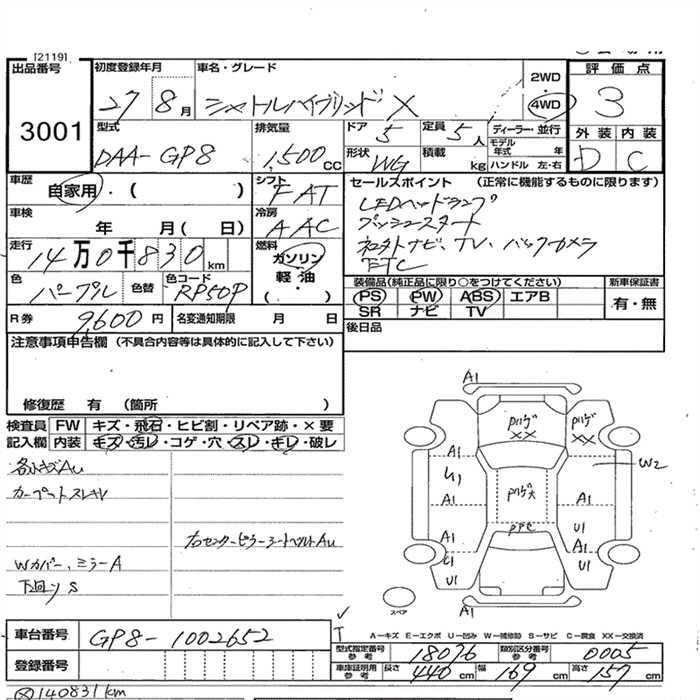 [2119]
出品番号
3001
初度登録年月
27 8月
車名・グレード
シャトルハイブリッド X
2WD
4WD
評価点
3
外装 内装
D C
型式
DAA-GP8
排気量
1,500cc
ドア
5
定員
5人
形状
WG
積載
kg
ディーラー・並行
モデル年式 年
ハンドル 左・右
車歴
自家用・( )
シフト
FAT
車検
年 月( 日)
冷房
AAC
走行
14万0千830km
燃料
ガソリン
軽油
( )
色
パープル
色替
色コード
RP50P
R券
9,600円
名変通知期限 月 日
セールスポイント (正常に機能するものに限ります)
LEDヘッドランプ
プッシュスタート
社外ナビ、TV、バックカメラ
ETC
装備品(純正品に限り○をつけてください)
PS PW ABS エアB
SR ナビ TV
新車保証書
有・無
後日品
注意事項申告欄 (不具合内容等は具体的に記入して下さい)
修復歴 有 (箇所 )
検査員記入欄
FW キズ・飛石・ヒビ割・リペア跡・×要
内装 キズ・汚レ・コゲ・穴・スレ・キレ・破レ
各所キズAu
カーペットスレキレ
右センターピラーシートベルトAu
Wカバー、ミラーA
下回りS
A1
XX
XX
A1
A1
W2
A1
A1
U1
A1
A1
U1
U1
スペア
A1
A-キズ E-エクボ U-凹み W-補修跡 S-サビ C-腐食 XX-交換済
車台番号
GP8-1002652
登録番号
型式指定番号 参考
18076
類別区分番号 参考
0005
車庫証明用 参考
長さ
440cm
幅
169cm
高さ
157cm
140831km